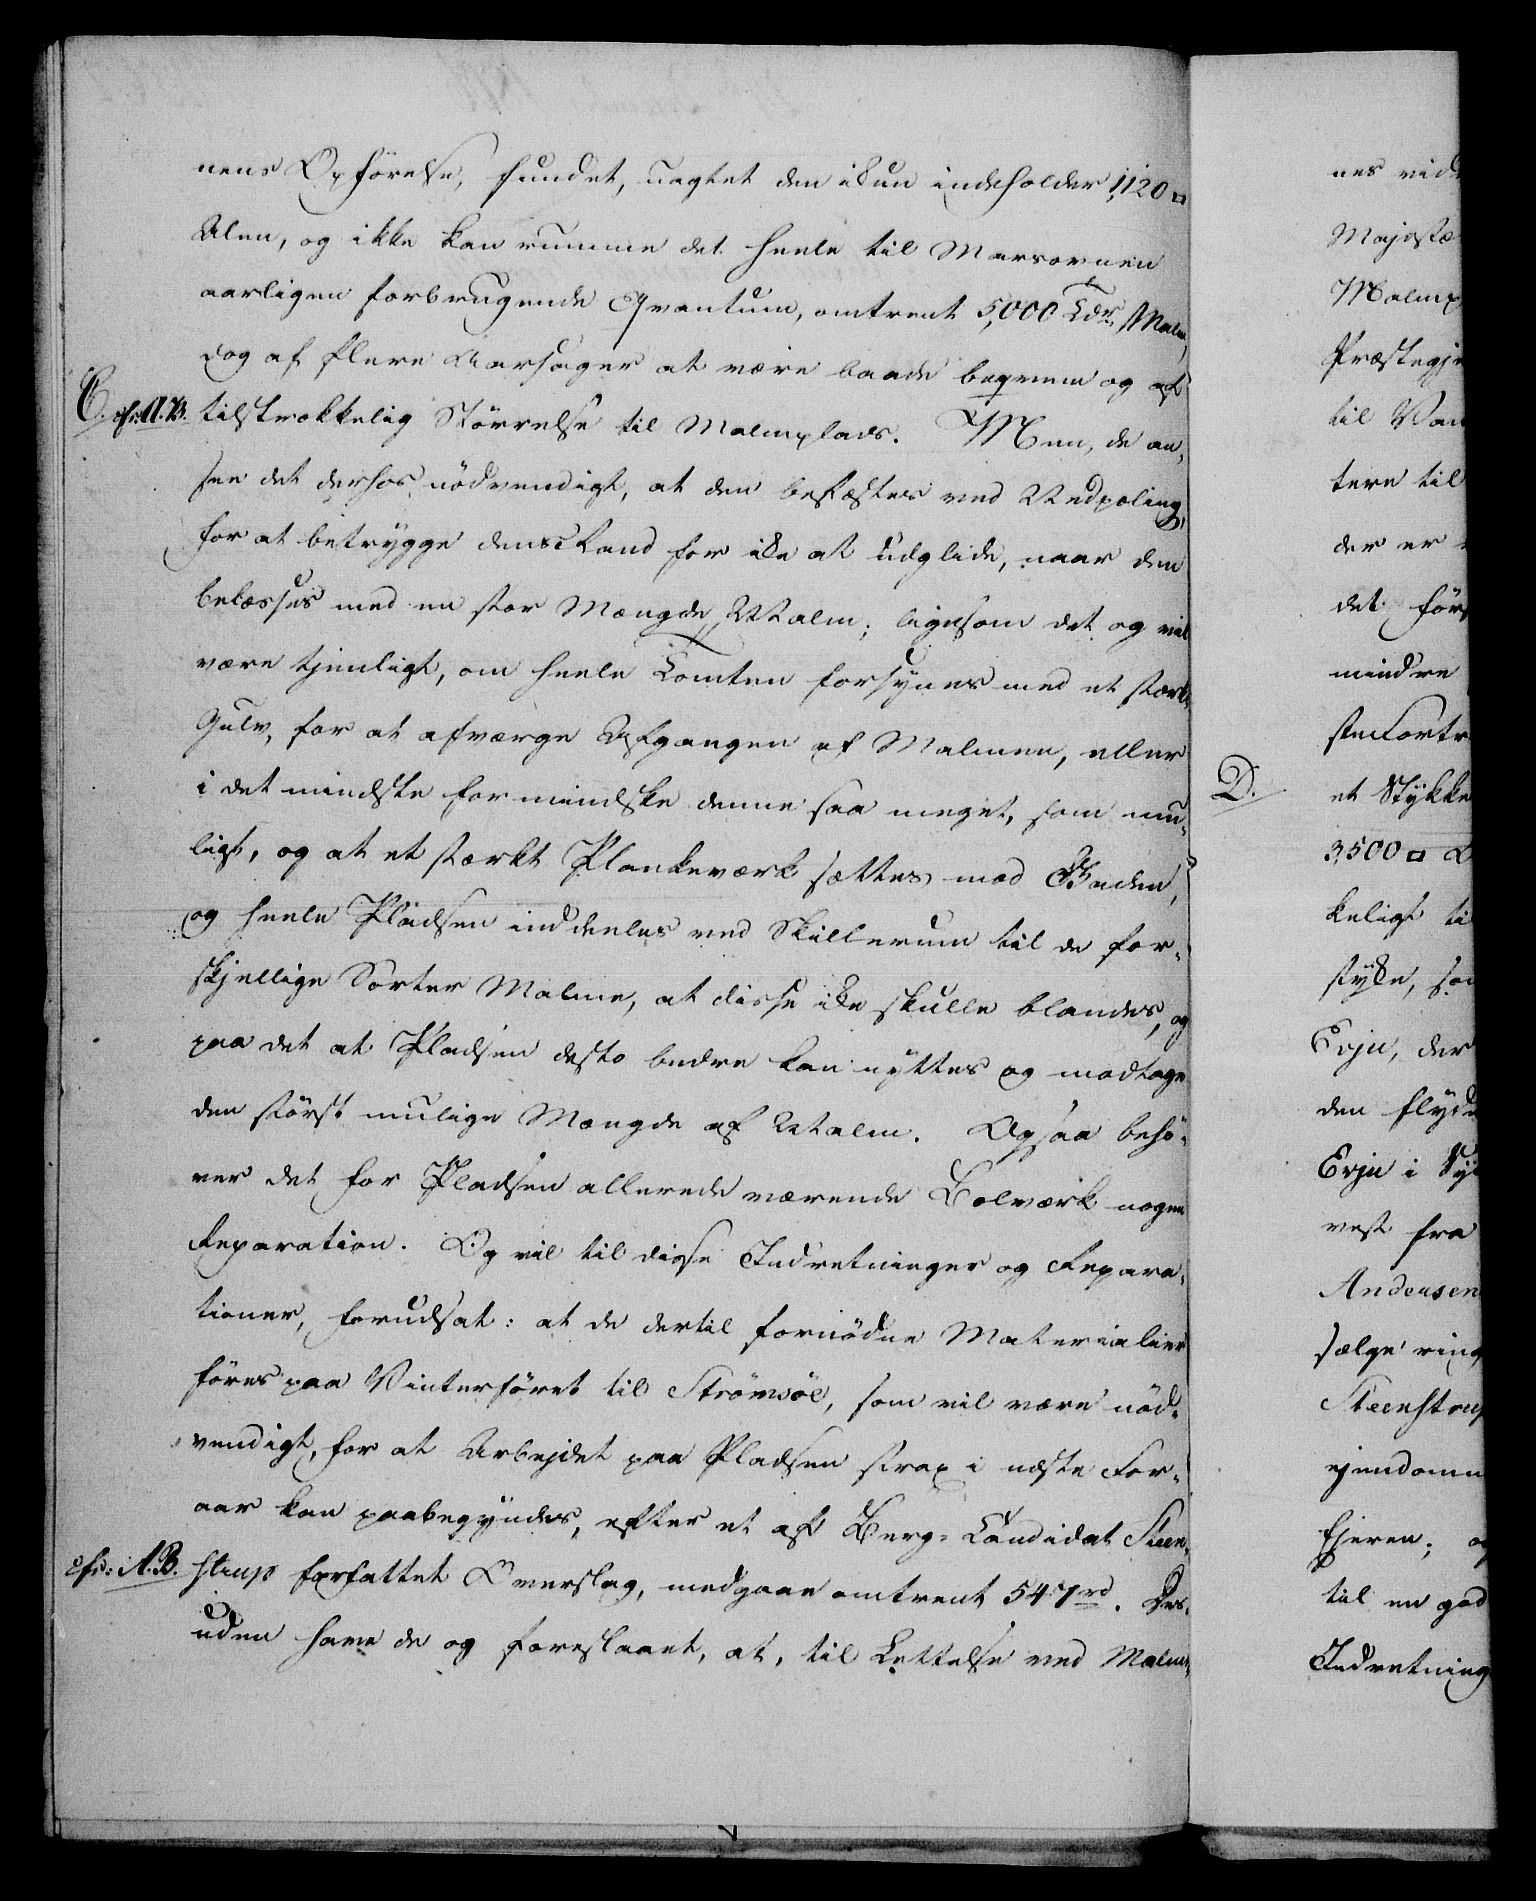 nens Opförelse, fundet, uagtet den ikun indeholder 1,120 □
Alen, og ikke kan rumme det heele til Marsovnen
aarligen forbrugende Qvantum, omtrent 5,000 Tdr. Malm,
dog af flere Aarsager at være baade beqvem og af
C. cfr. A.B. tilstrækkelig Störrelse til Malmplads. Men, de an-
see det derhos nödvendigt, at den befæstes ved Nedpæling,
for at betrygge dens Rand for ike at udglide, naar den
belæsses med en stor Mængde Malm; ligesom det og vil
være tjenligt, om heele Tomten forsynes med et stærkt
Gulv, for at afværge Afgangen af Malmen, eller
i det mindste formindske denne saa meget, som mu-
ligt, og at et stærkt Plankeværk sættes mod Gaden,
og heele Pladsen inddeeles ved Skillerum til de for-
skjellige Sorter Malme, at disse ike skulle blandes, og
paa det at Pladsen desto bedre kan nyttes og modtage
den störst mulige Mængde af Malm. Ogsaa behö-
ver det for Pladsen allerede værende Bolværk nogen
Reparation. Og vil til disse Indretninger og Repara-
tioner, forudsat: at de dertil fornödne Materialier
föres paa Vinterföret til Strömsöe, som vil være nöd-
vendigt, for at Arbejdet paa Pladsen strax i næste For-
aar kan paabegyndes, efter et af Berg-Candidat Steen-
cfr: A.B. strup forfattet Overslag, medgaae omtrent 547 rd. Des-
uden have de og foreslaaet, at, til Lettelse ved Malm-
nes vid
Majestæ
Malmp
Præstegje
til Van
tere til
der er
det förs
mindre
stenfortr
D. et Stykke
3,500 □
keligt ti
styke, so
Evju, der
den flyd
Evju i Sy
vest fra
Andersen
sælge ring
Steenstrup
ejendomm
Ejeren; og
til en god
Indretning